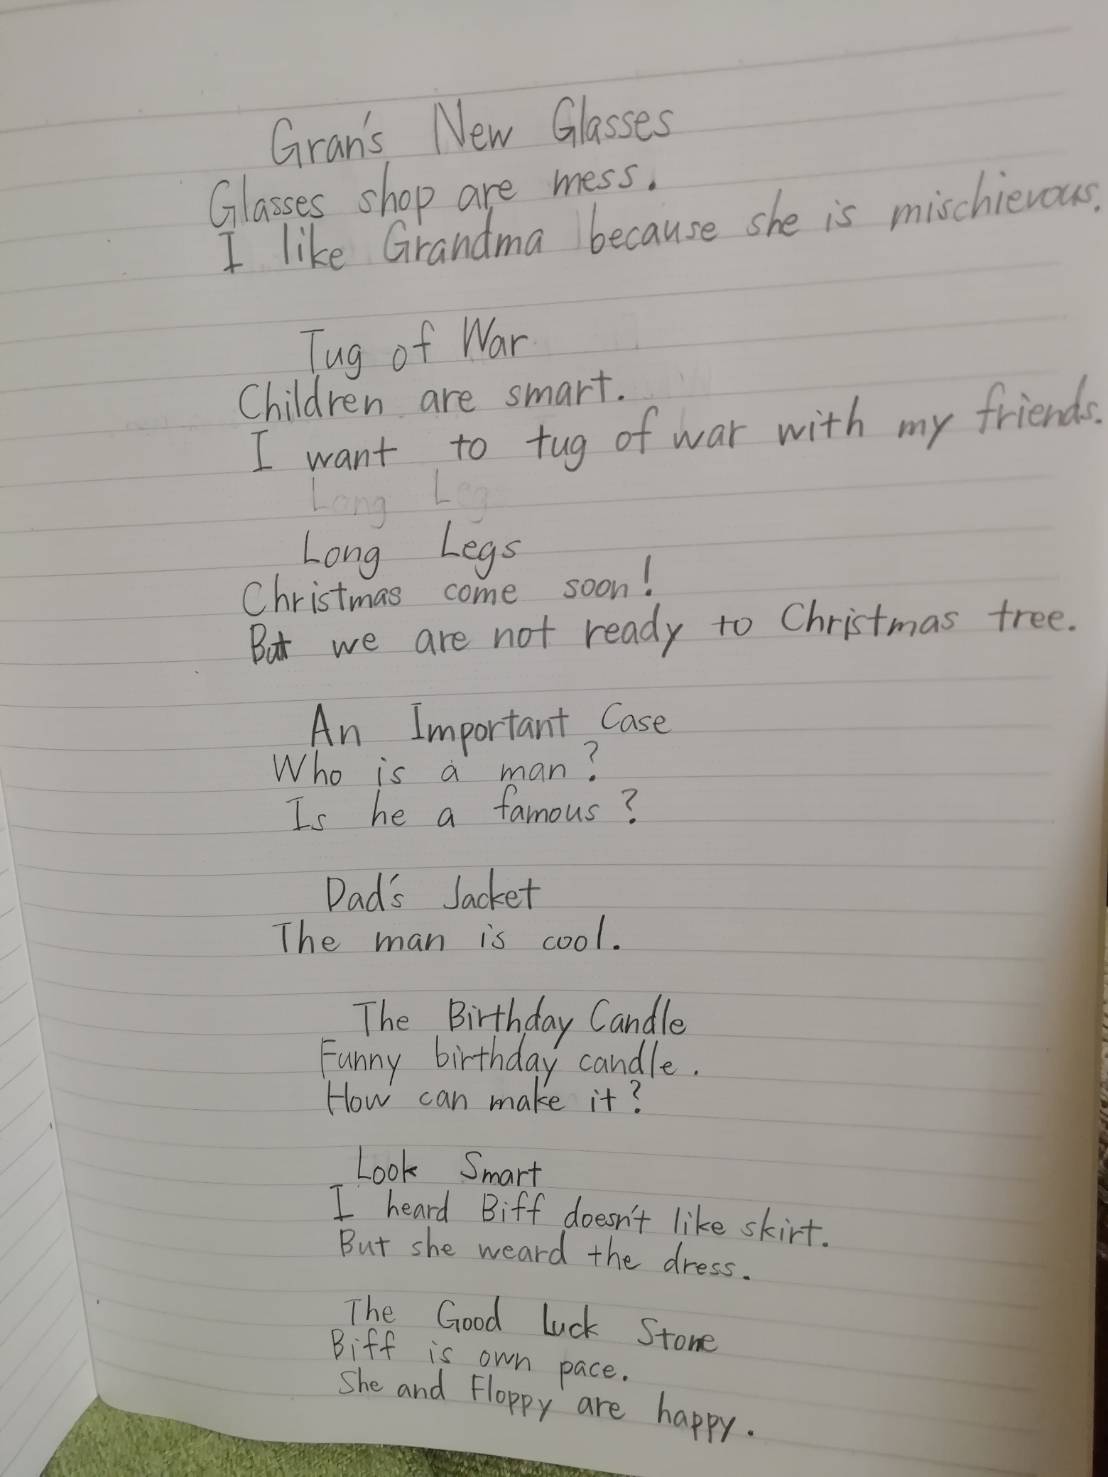 Gran's New Glasses
Glasses shop are mess.
I like Grandma because she is mischievous.
Tug of War
Children are smart.
I want to tug of war with my friends.
Long Leg
Long Legs
Christmas come soon!
But we are not ready to Christmas tree.
An Important Case
Who is a man?
Is he a famous?
Dad's Jacket
The man is cool.
The Birthday Candle
Funny birthday candle.
How can make it?
Look Smart
I heard Biff doesn't like skirt.
But she weard the dress.
The Good Luck Stone
Biff is own pace.
She and Floppy are happy.